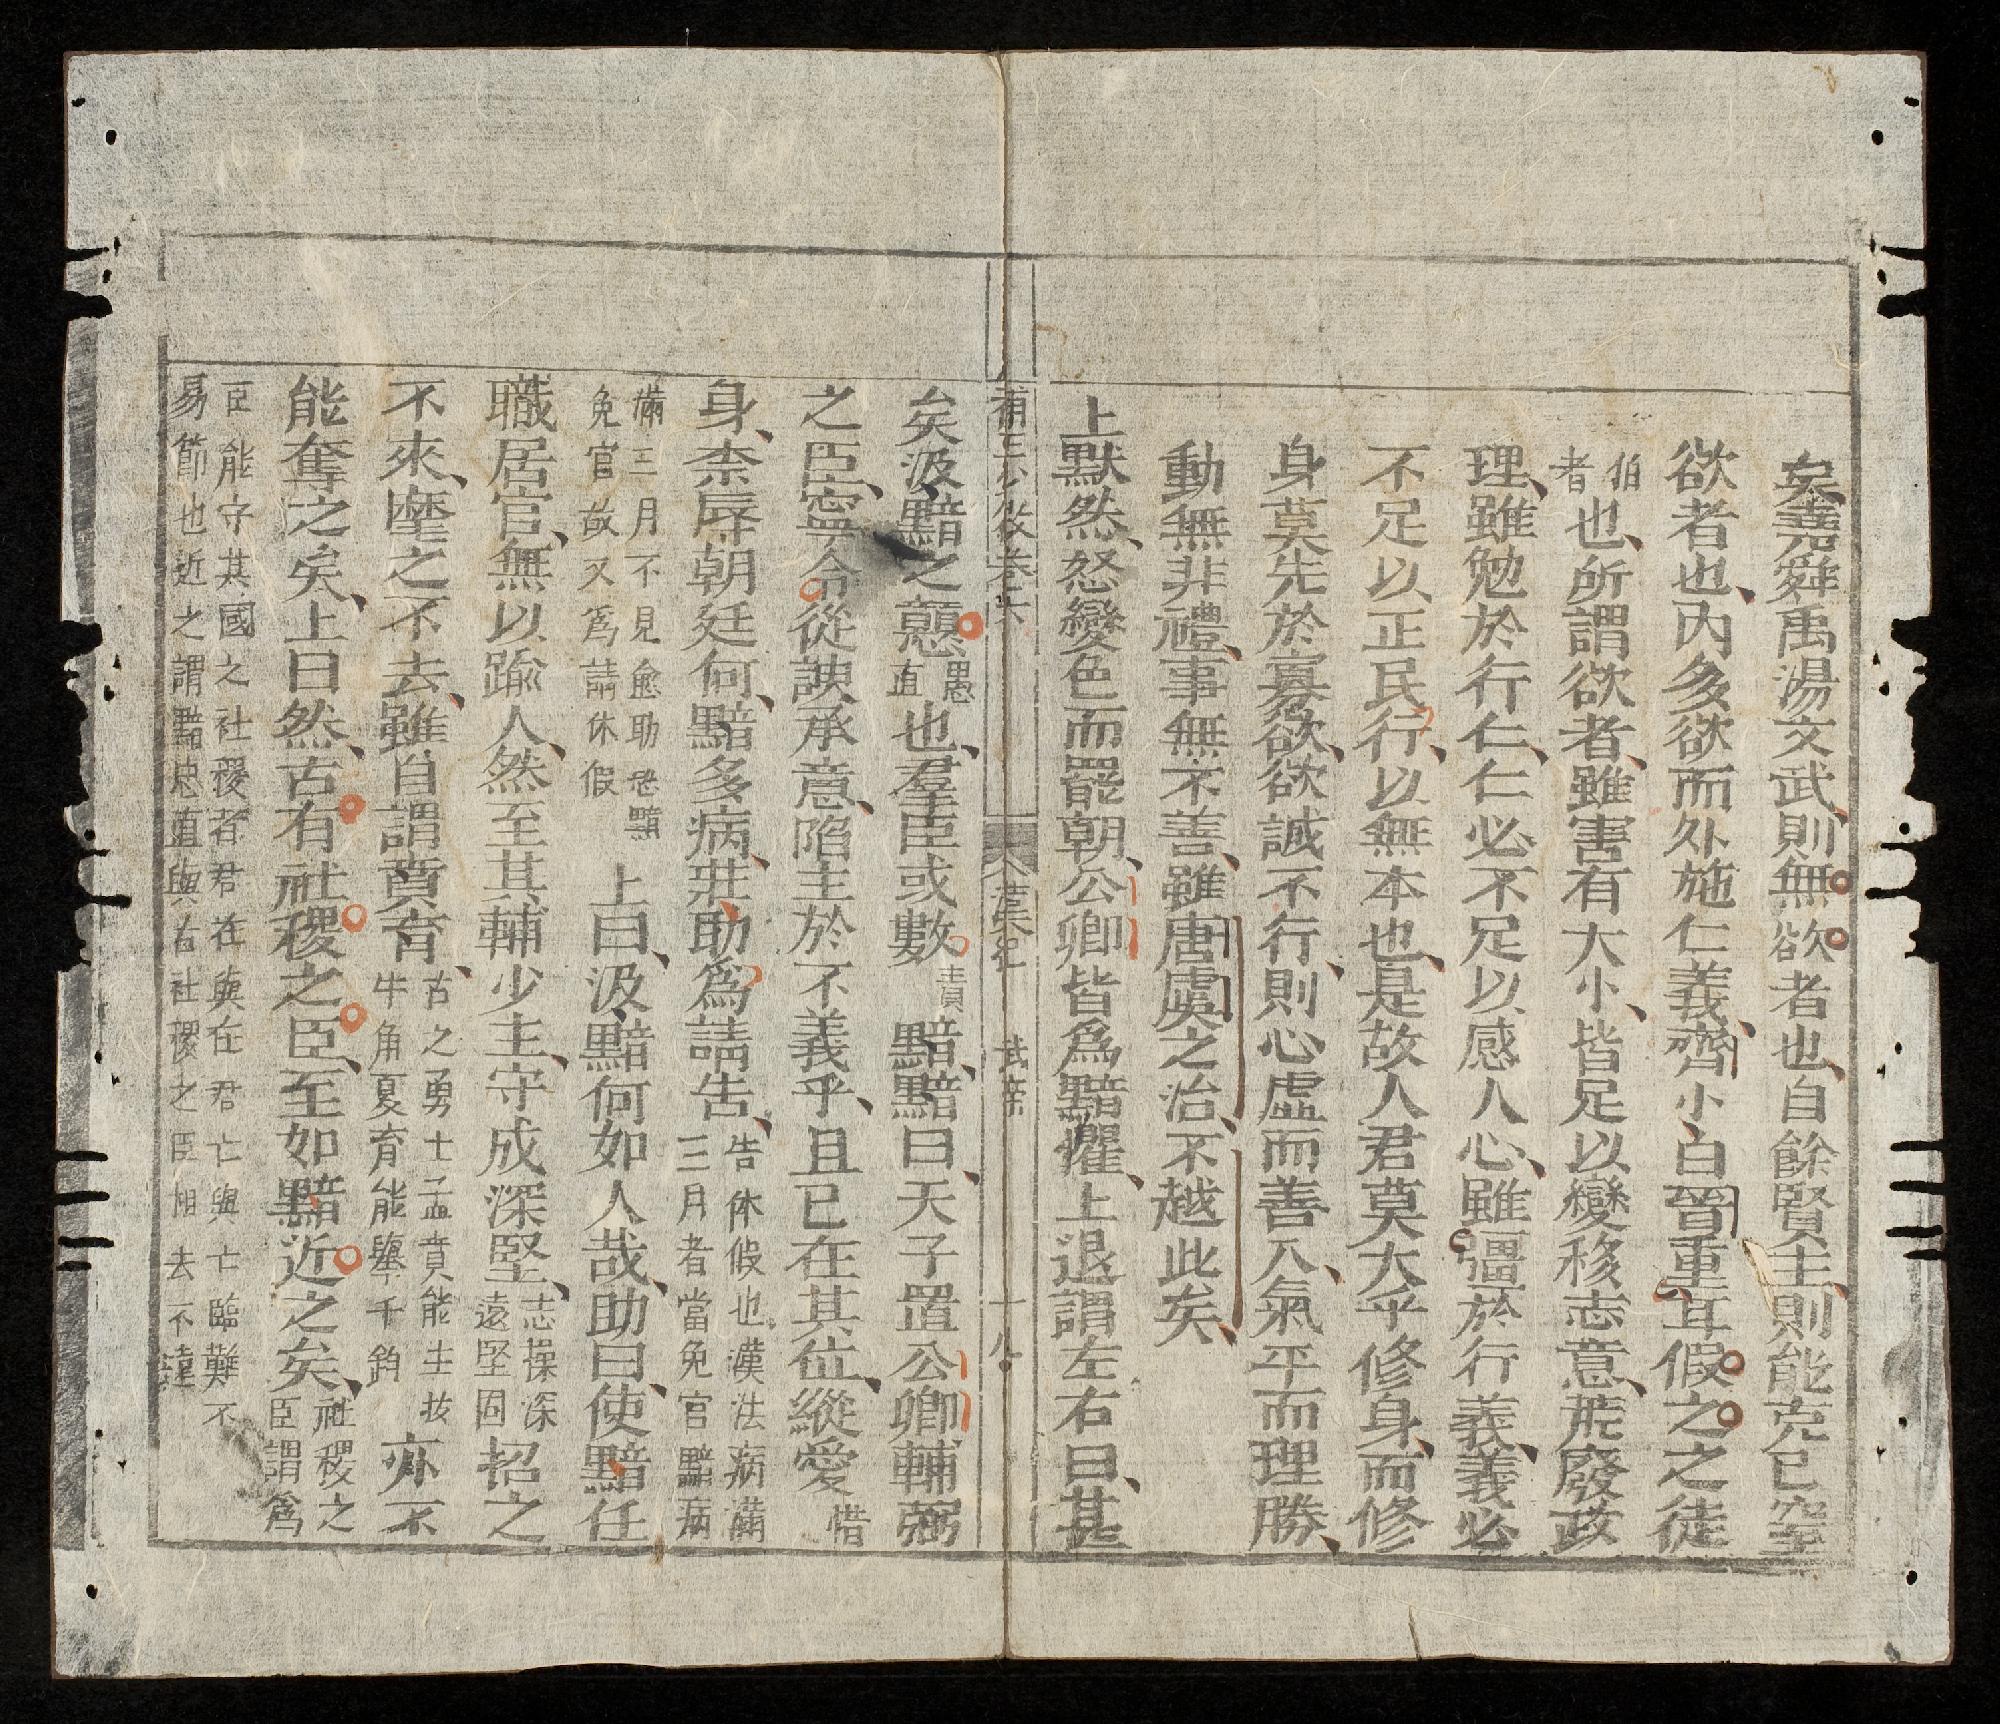 矣堯舜禹湯文武則無欲者也自餘賢主則能克已窒
欲者也內多欲而外施仁義齊小白晉重耳假之之徒
伯
者
也所謂欲者雖害有大小皆足以變移志意荒廢政
理雖勉於行仁仁必不足以感人心雖彊於行義義必
不足以正民行以無本也是故人君莫大乎修身而修
身莫先於寡欲欲誠不行則心虛而善入氣平而理勝
動無非禮事無不善雖唐虞之治不越此矣
上默然怒變色而罷朝公卿皆爲黯懼上退謂左右曰甚
卷六
漢紀 武帝
十八
矣汲黯之戇
愚
直
也羣臣或數
責
黯黯曰天子置公卿輔弼
之臣寧令從諛承意陷主於不義乎且已在其位縱愛
惜
身柰辱朝廷何黯多病莊助爲請告
告休假也漢法病滿
三月者當免官黯病
滿三月不見愈助恐黯
免官故又爲請休假
上曰汲黯何如人哉助曰使黯任
職居官無以踰人然至其輔少主守成深堅
志操深
遠堅固
招之
不來麾之不去雖自謂賁育
古之勇士孟賁能生拔
牛角夏育能舉千鈞
亦不
能奪之矣上曰然古有社稷之臣至如黯近之矣
社稷之
臣謂爲
臣能守其國之社稷者君在與在君亡與亡臨難不
易節也近之謂黯忠直與古社稷之臣相去不違